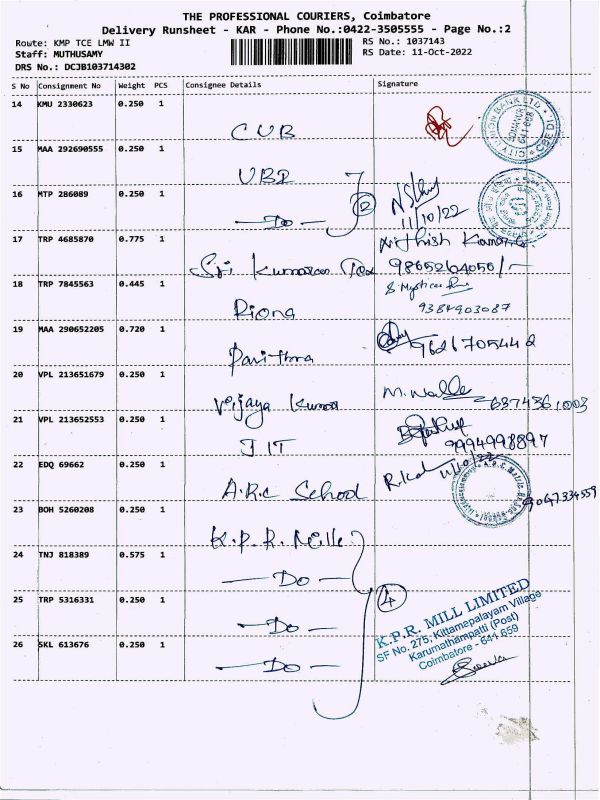 THE PROFESSIONAL COURIERS, Coimbatore
Delivery Runsheet - KAR - Phone No.:0422-3505555 - Page No.:2
Route: KMP TCE LMW II
RS No.: 1037143
Staff: MUTHUSAMY
RS Date: 11-Oct-2022
DRS No.: DCJB103714302
S No Consignment No Weight PCS Consignee Details Signature
14 KMU 2330623 0.250 1
CUB
15 MAA 292690555 0.250 1
UBI
16 MTP 286089 0.250 1
2
- Do -
11/10/22
17 TRP 4685870 0.775 1
Sri Kumaran
9865264050/-
18 TRP 7845563 0.445 1
Riona
9384903087
19 MAA 290652205 0.720 1
Pavithra
9626705442
20 VPL 213651679 0.250 1
Vijaya Kumar
6374361003
21 VPL 213652553 0.250 1
JIT
9994998897
22 EDQ 69662 0.250 1
11/10/22
A.R.C School
9047334559
23 BOH 5260208 0.250 1
K.P.R. Mills
24 TNJ 818389 0.575 1
- Do -
25 TRP 5316331 0.250 1
4
- Do -
26 SKL 613676 0.250 1
- Do -
K.P.R. MILL LIMITED
SF No. 275, Kittampalayam Village
Karumathampatti (Post)
Coimbatore - 641 659